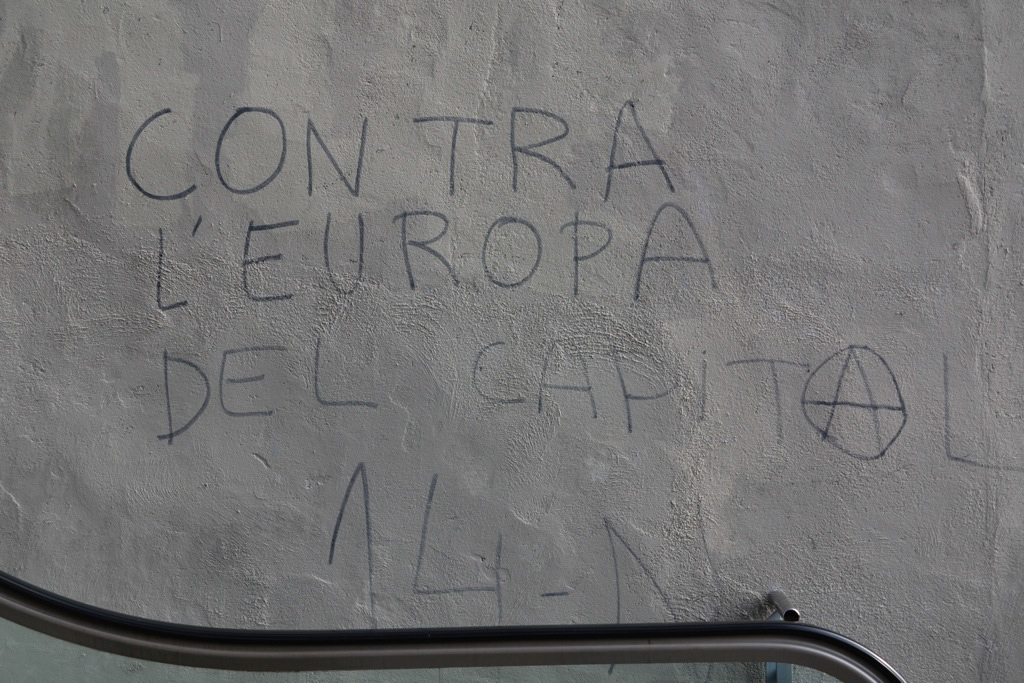 CONTRA
L'EUROPA
DEL CAPITAL
14-N